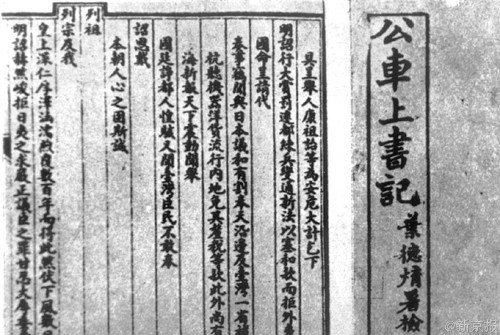 公車上書記
葉德 署檢
具呈舉人康祖詒等為安危大計乞下
明詔行大賞罰遷都練兵變通新法以塞和款而拒外
國命呈請代
奏事竊聞與日本議和有割奉天沿邊及臺灣一省
杭聽機器洋貨流行內地免其釐稅等款此外尚有
海新報天下震動聞舉
國廷諍都人惶駭又聞臺灣臣民不敢奉
詔思戴
本朝人心之固斯誠
列祖
列宗及我
皇上深仁厚澤涵濡煦覆數百年而得此然伏下風數
明詔赫然峻拒日夷之求嚴正議臣之罪甘忍大辱委
@新京报